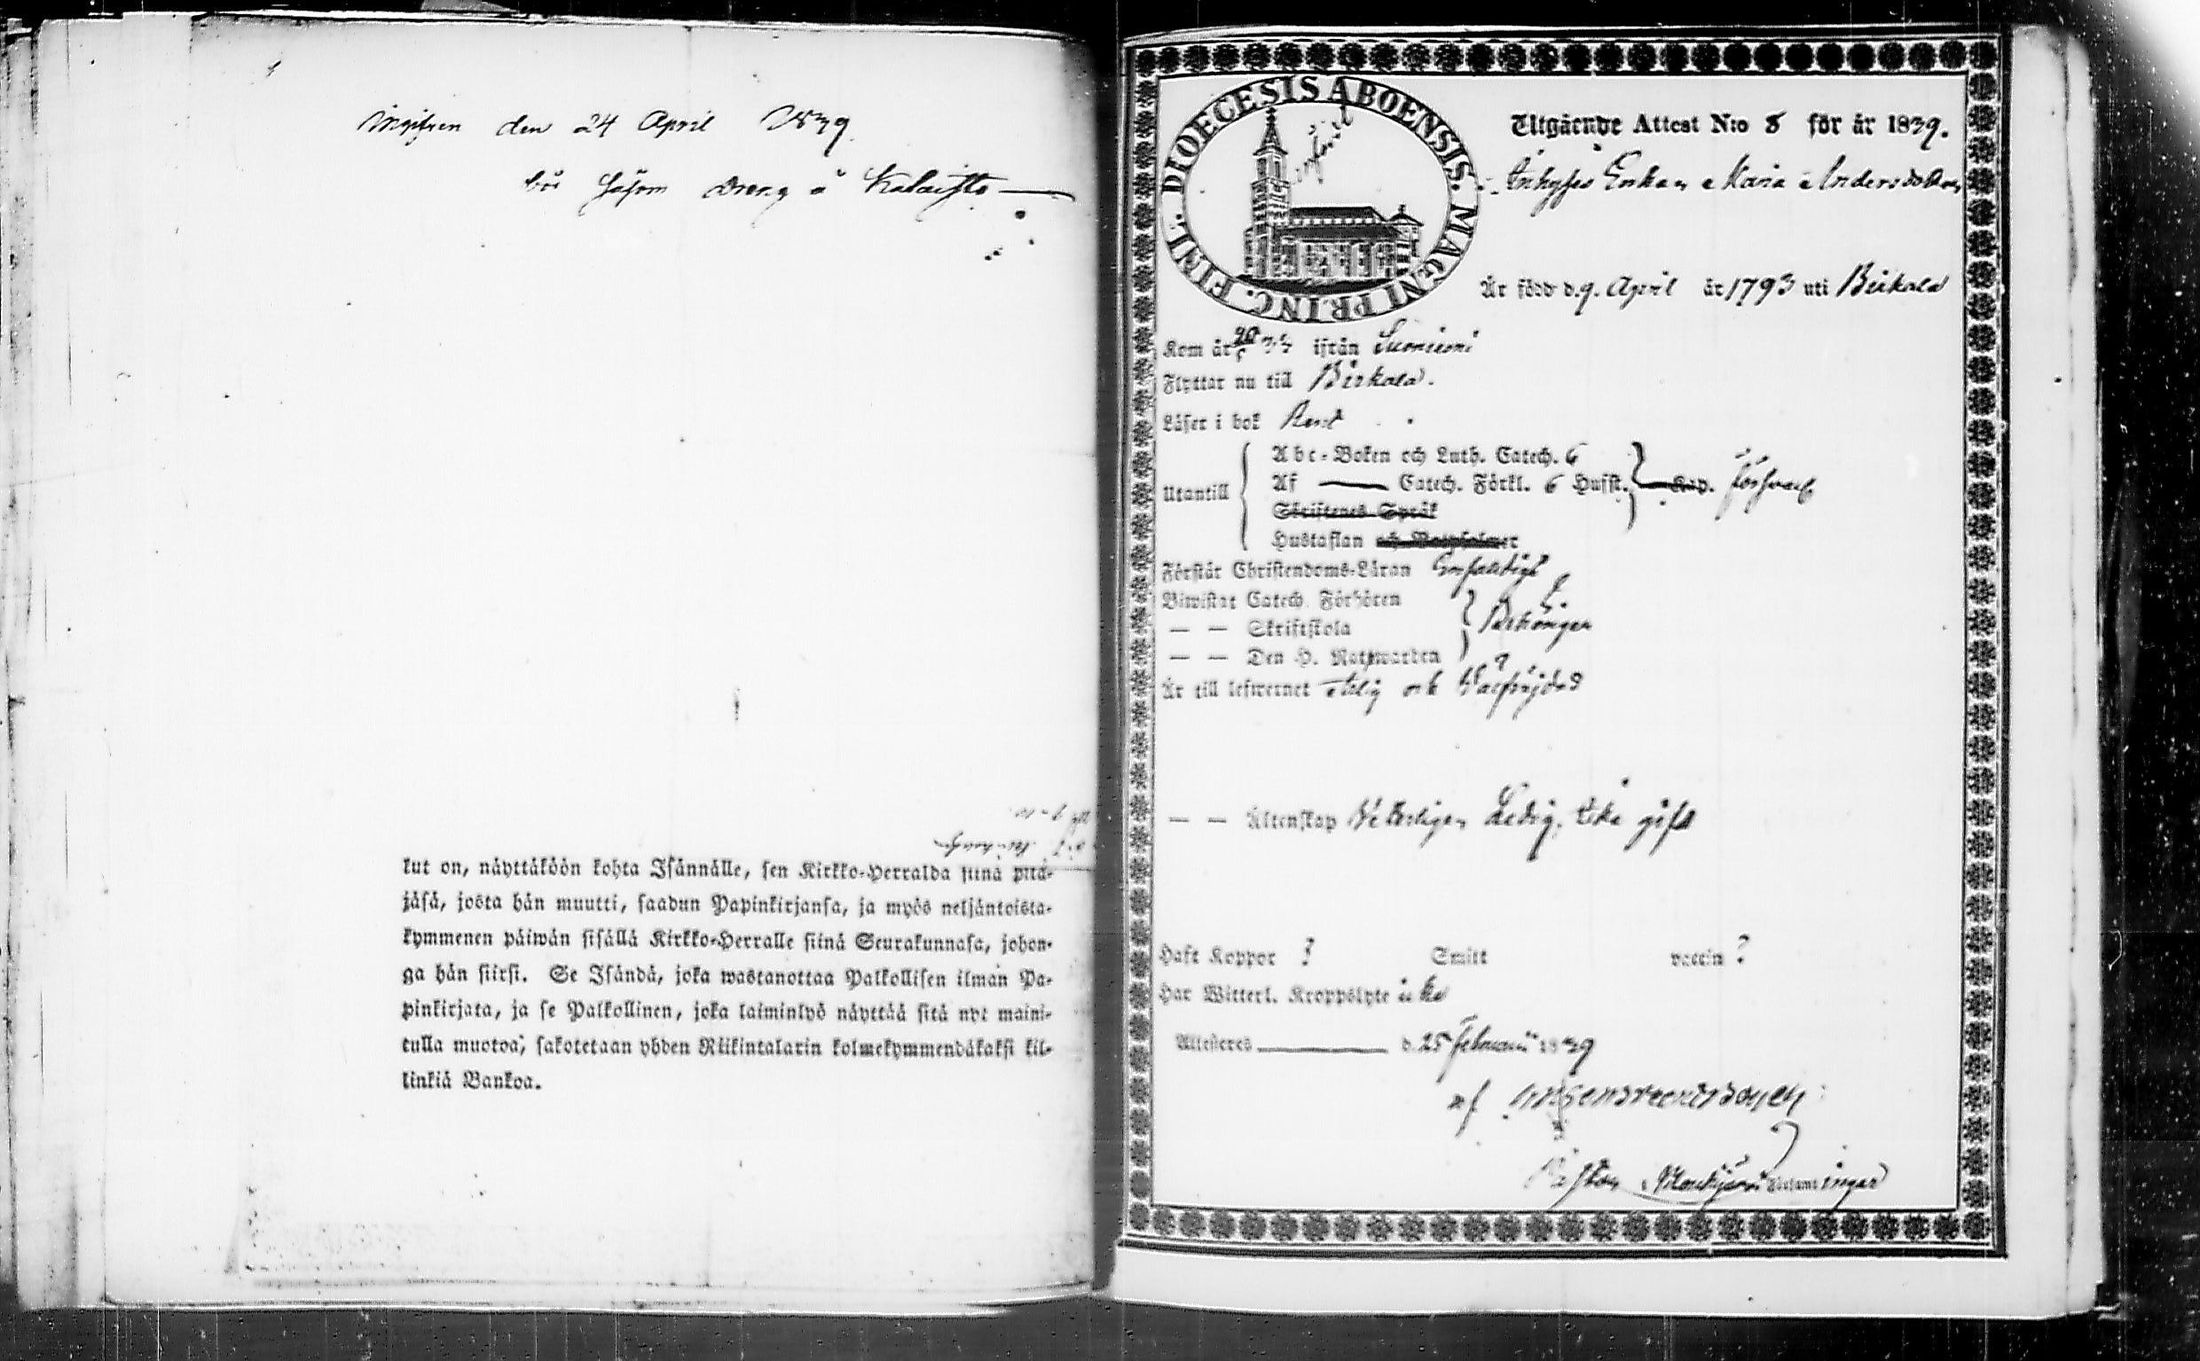 den 24 April 1839
bör såsom dreng å
kut on, näyttäköön kohta Isännälle, sen Kirkko-Herralda siinä pitä-
jäsä, josta hän muutti, saadun Papinkirjansa, ja myös neljäntoista-
kymmenen päiwän sisällä Kirkko-Herralle siinä Seurakunnasa, johon-
ga hän siirsi. Se Isändä, joka wastanottaa Palkollisen ilman Pa-
pinkirjata, ja se Palkollinen, joka laiminlyö näyttää sitä nyt maini-
tulla muotoa, sakotetaan yhden Riikintalarin kolmekymmendäkaksi kil-
linkiä Bankoa.
DIOECESIS ABOENSIS. MAGNI PRINC. FINL.
införd
Utgående Attest N:o 8 för år 1839.
Inhyses Enkan Maria Andersdotter
Är född d. 9. April år 1793 uti Birkala
Kom år 34 ifrån Suoniemi
Flyttar nu till Birkala.
Läser i bok Rent
Utantill
Abc-Boken och Luth. Catech. 6
Af — Catech. Förkl. 6 Hufst. Kap. försvarl
Skriftenes Språk
Hustaflan och Botpsalmer
Förstår Christendoms-Läran Enfaldigt
Biwistat Catech. Förhören
— — Skriftskola
— — Den H. Nattwarden
Behörigen
Är till lefwernet ärlig och Välfräjdad
— — Äktenskap Veterligen Ledig, icke gift
Haft Koppor ? Smitt vaccin ?
Har Witterl. Kroppslyte icke
Attesteres d. 25 Februarii 1839
af
Pastor i Mouhijärvi Församlingar